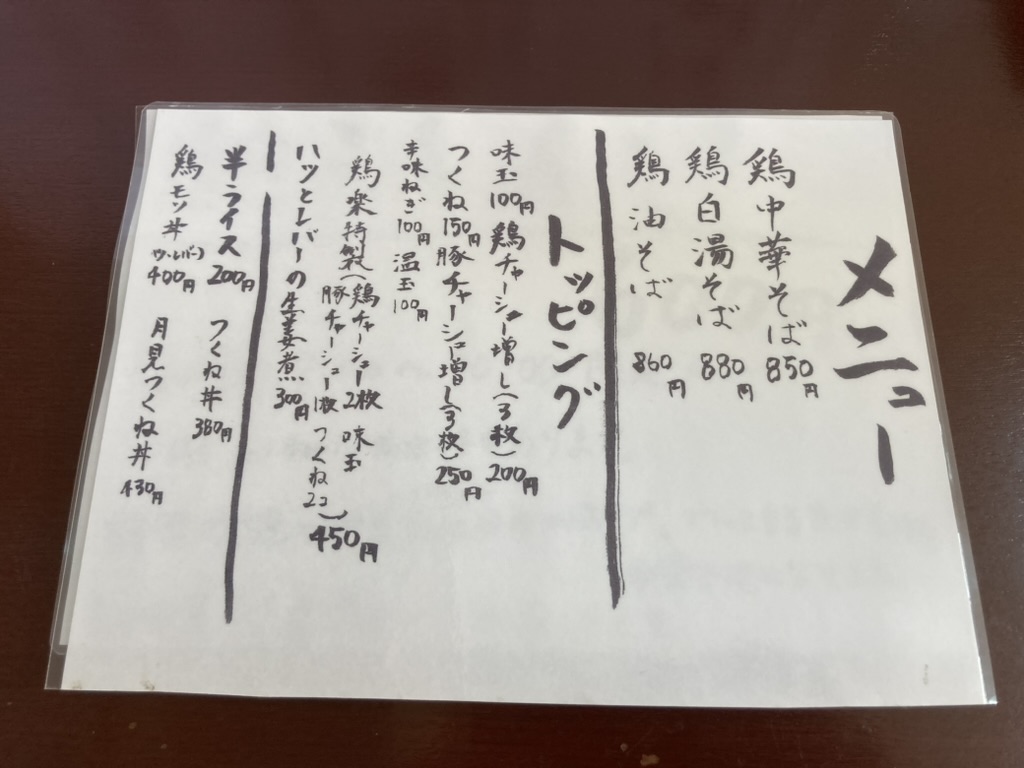 メニュー
鶏中華そば 850円
鶏白湯そば 880円
鶏油そば 860円
トッピング
味玉 100円 鶏チャーシュー増し(3枚) 200円
つくね 150円 豚チャーシュー増し(3枚) 250円
辛味ねぎ 100円 温玉 100円
鶏楽特製(鶏チャーシュー2枚 味玉
豚チャーシュー1枚 つくね2コ) 450円
ハツとレバーの生姜煮 300円
半ライス 200円 つくね丼 380円
鶏モツ丼 400円 月見つくね丼 430円